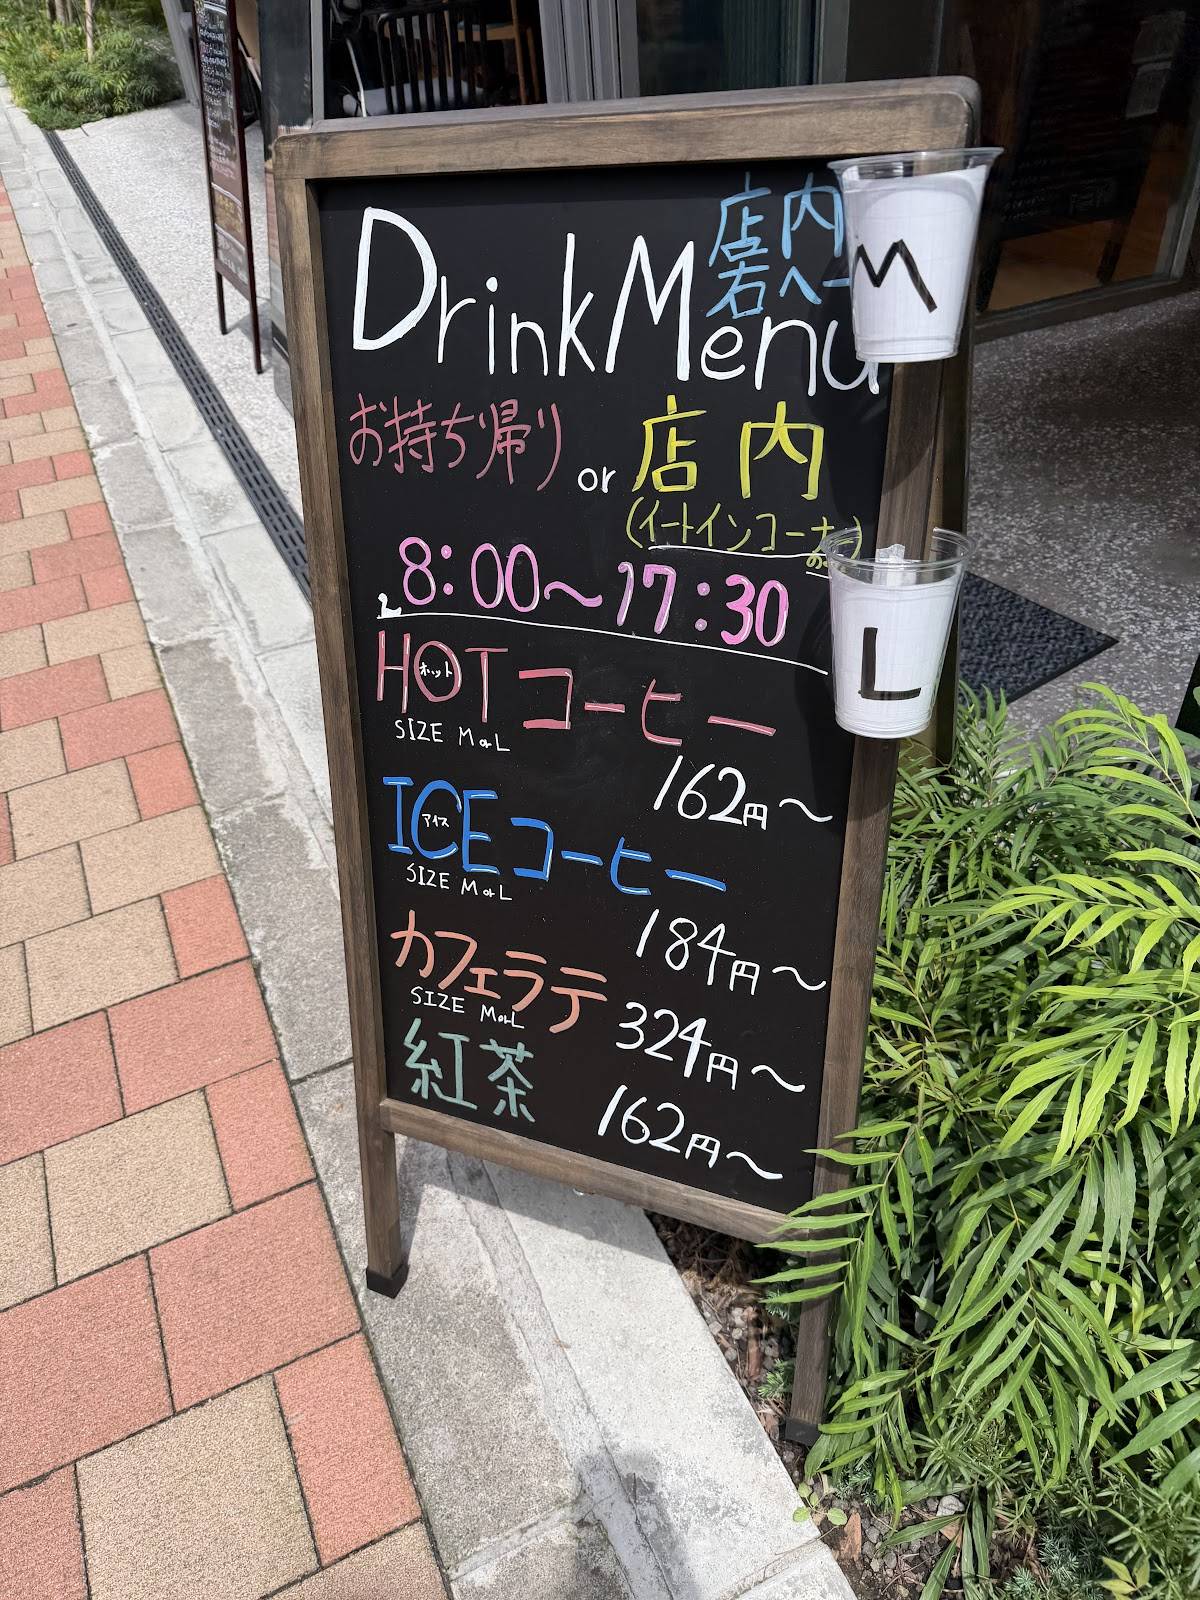 店内
右へ
Drink Menu
お持ち帰り or 店内
(イートインコーナー)
8:00〜17:30
HOTコーヒー
ホット
SIZE M or L
162円〜
ICEコーヒー
アイス
SIZE M or L
184円〜
カフェラテ
SIZE M or L
324円〜
紅茶
162円〜
M
L